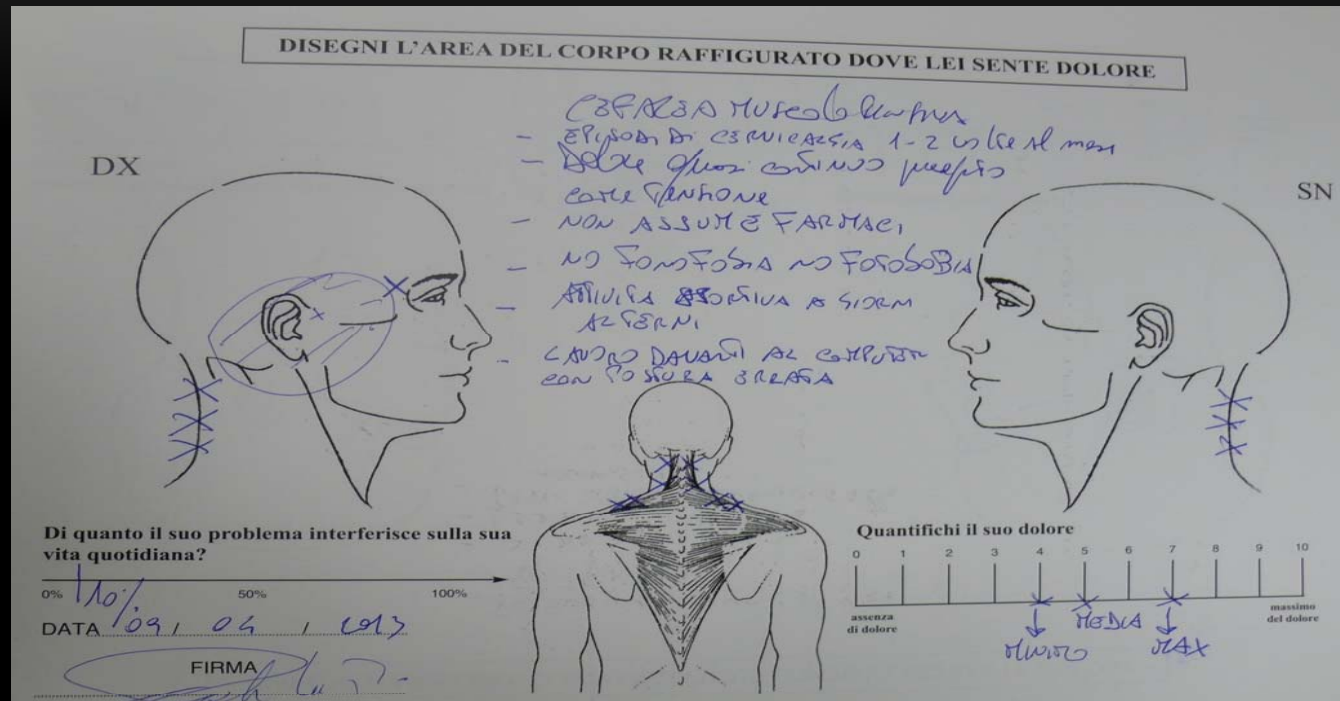 DISEGNI L'AREA DEL CORPO RAFFIGURATO DOVE LEI SENTE DOLORE
CEFALEA
- EPISODI DI CERVICALGIA 1-2 volte al mese
- DOLORE quasi continuo
come TENSIONE
- NON ASSUME FARMACI
- NO FONOFOBIA NO FOTOFOBIA
- ATTIVITÀ SPORTIVA A GIORNI
ALTERNI
- LAVORO DAVANTI AL COMPUTER
CON POSTURA ERRATA
DX
SN
Di quanto il suo problema interferisce sulla sua
vita quotidiana?
0% 10% 50% 100%
DATA 09 / 04 /
FIRMA
Quantifichi il suo dolore
0 1 2 3 4 5 6 7 8 9 10
assenza
di dolore
massimo
del dolore
MINIMO MEDIA MAX